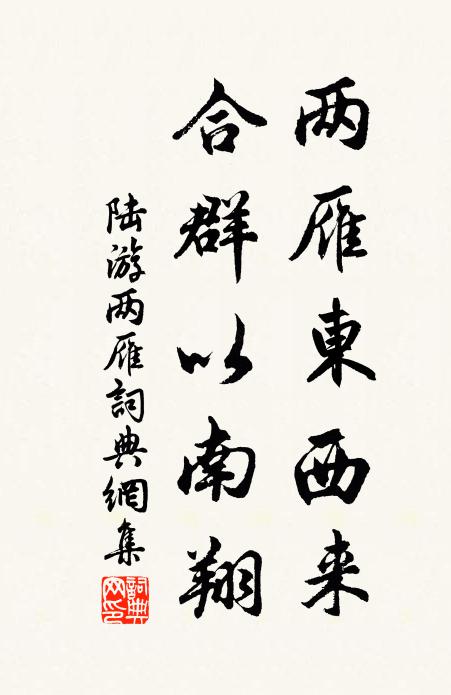 两雁東西来
合群以南翔
陆游两雁詞典網集
詞典网印